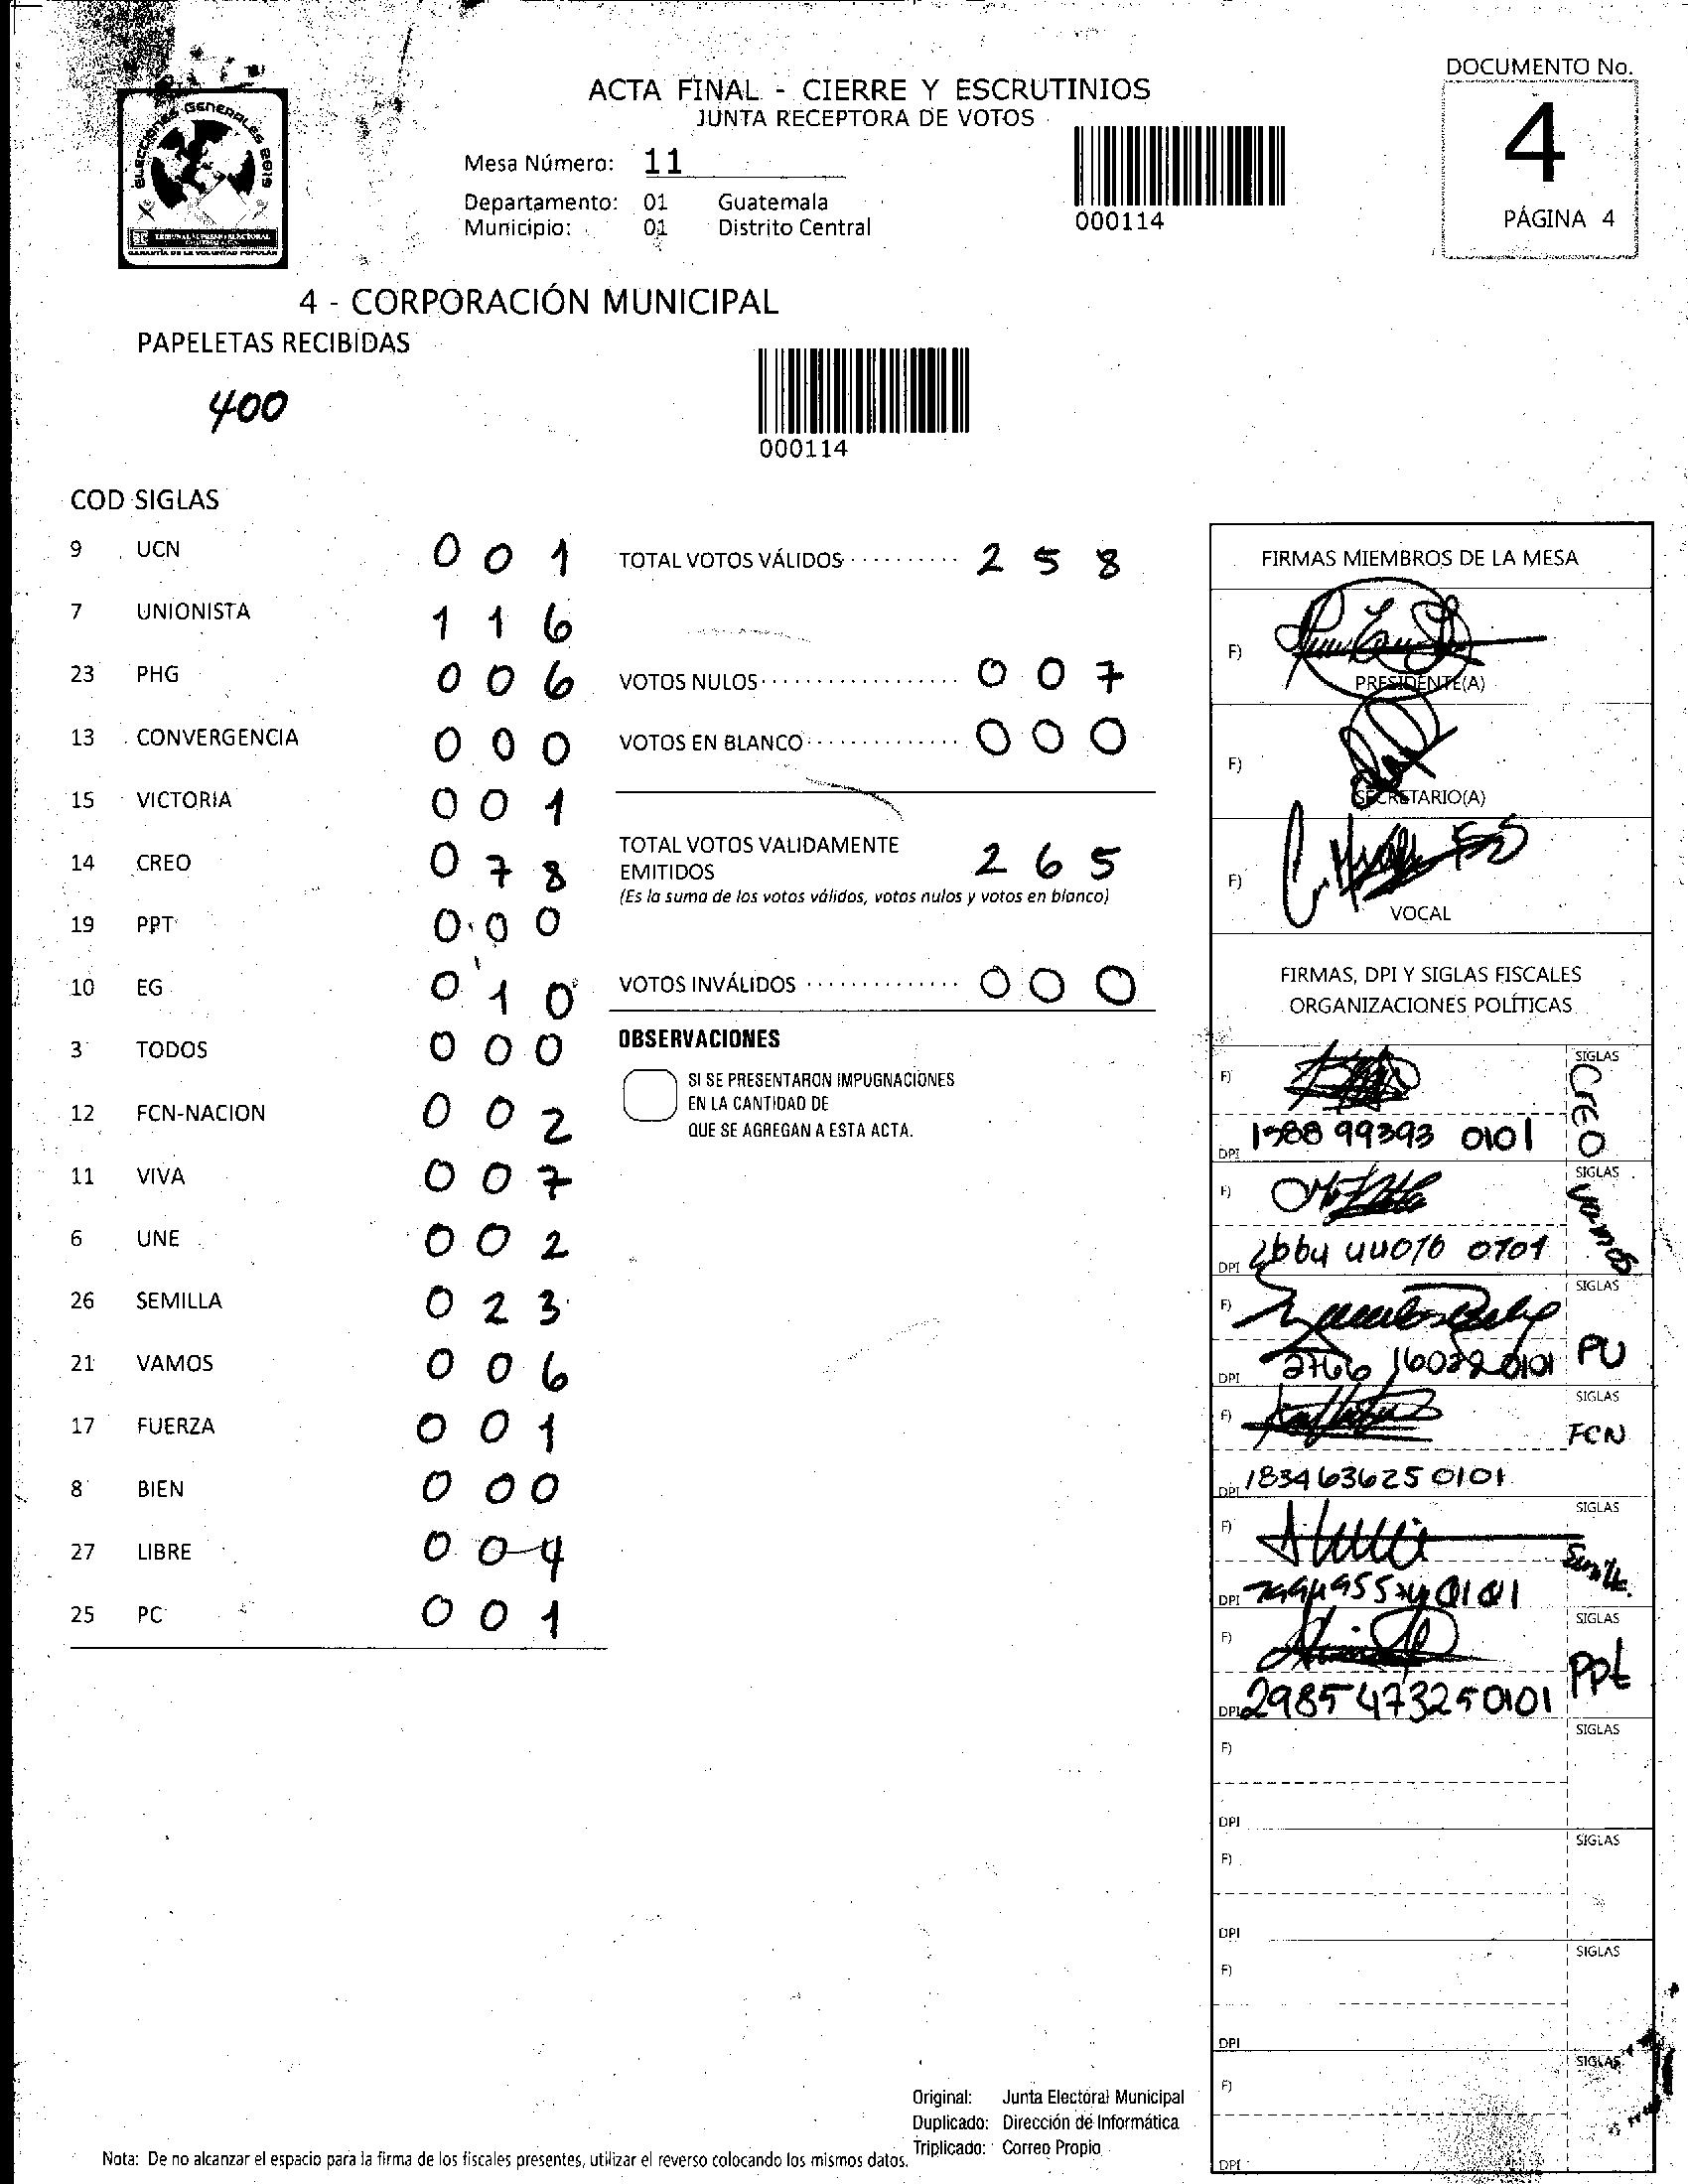 DOCUMENTO No.
4
PÁGINA 4
ACTA FINAL - CIERRE Y ESCRUTINIOS
JUNTA RECEPTORA DE VOTOS
ELECCIONES GENERALES 2019
TRIBUNAL SUPREMO ELECTORAL
GARANTÍA DE LA VOLUNTAD POPULAR
Mesa Número: 11
Departamento: 01 Guatemala
Municipio: 01 Distrito Central
000114
4 - CORPORACIÓN MUNICIPAL
PAPELETAS RECIBIDAS
400
000114
COD SIGLAS
9 UCN 0 0 1
7 UNIONISTA 1 1 6
23 PHG 0 0 6
13 CONVERGENCIA 0 0 0
15 VICTORIA 0 0 1
14 CREO 0 7 8
19 PPT 0 0 0
10 EG 0 1 0
3 TODOS 0 0 0
12 FCN-NACION 0 0 2
11 VIVA 0 0 7
6 UNE 0 0 2
26 SEMILLA 0 2 3
21 VAMOS 0 0 6
17 FUERZA 0 0 1
8 BIEN 0 0 0
27 LIBRE 0 0 4
25 PC 0 0 1
TOTAL VOTOS VÁLIDOS 2 5 8
VOTOS NULOS 0 0 7
VOTOS EN BLANCO 0 0 0
TOTAL VOTOS VALIDAMENTE
EMITIDOS 2 6 5
(Es la suma de los votos válidos, votos nulos y votos en blanco)
VOTOS INVÁLIDOS 0 0 0
OBSERVACIONES
SI SE PRESENTARON IMPUGNACIONES
EN LA CANTIDAD DE
QUE SE AGREGAN A ESTA ACTA.
FIRMAS MIEMBROS DE LA MESA
F)
PRESIDENTE(A)
F)
SECRETARIO(A)
F)
VOCAL
FIRMAS, DPI Y SIGLAS FISCALES
ORGANIZACIONES POLÍTICAS
F) SIGLAS
CREO
DPI 99393 0101
F) SIGLAS
Vamos
DPI
F) SIGLAS
PU
DPI 2766
F) SIGLAS
FCN
DPI 1834636250101
F) SIGLAS
DPI
F) SIGLAS
PPt
DPI 2985473250101
F) SIGLAS
DPI
F) SIGLAS
DPI
F) SIGLAS
DPI
F) SIGLAS
DPI
Original: Junta Electoral Municipal
Duplicado: Dirección de Informática
Triplicado: Correo Propio
Nota: De no alcanzar el espacio para la firma de los fiscales presentes, utilizar el reverso colocando los mismos datos.